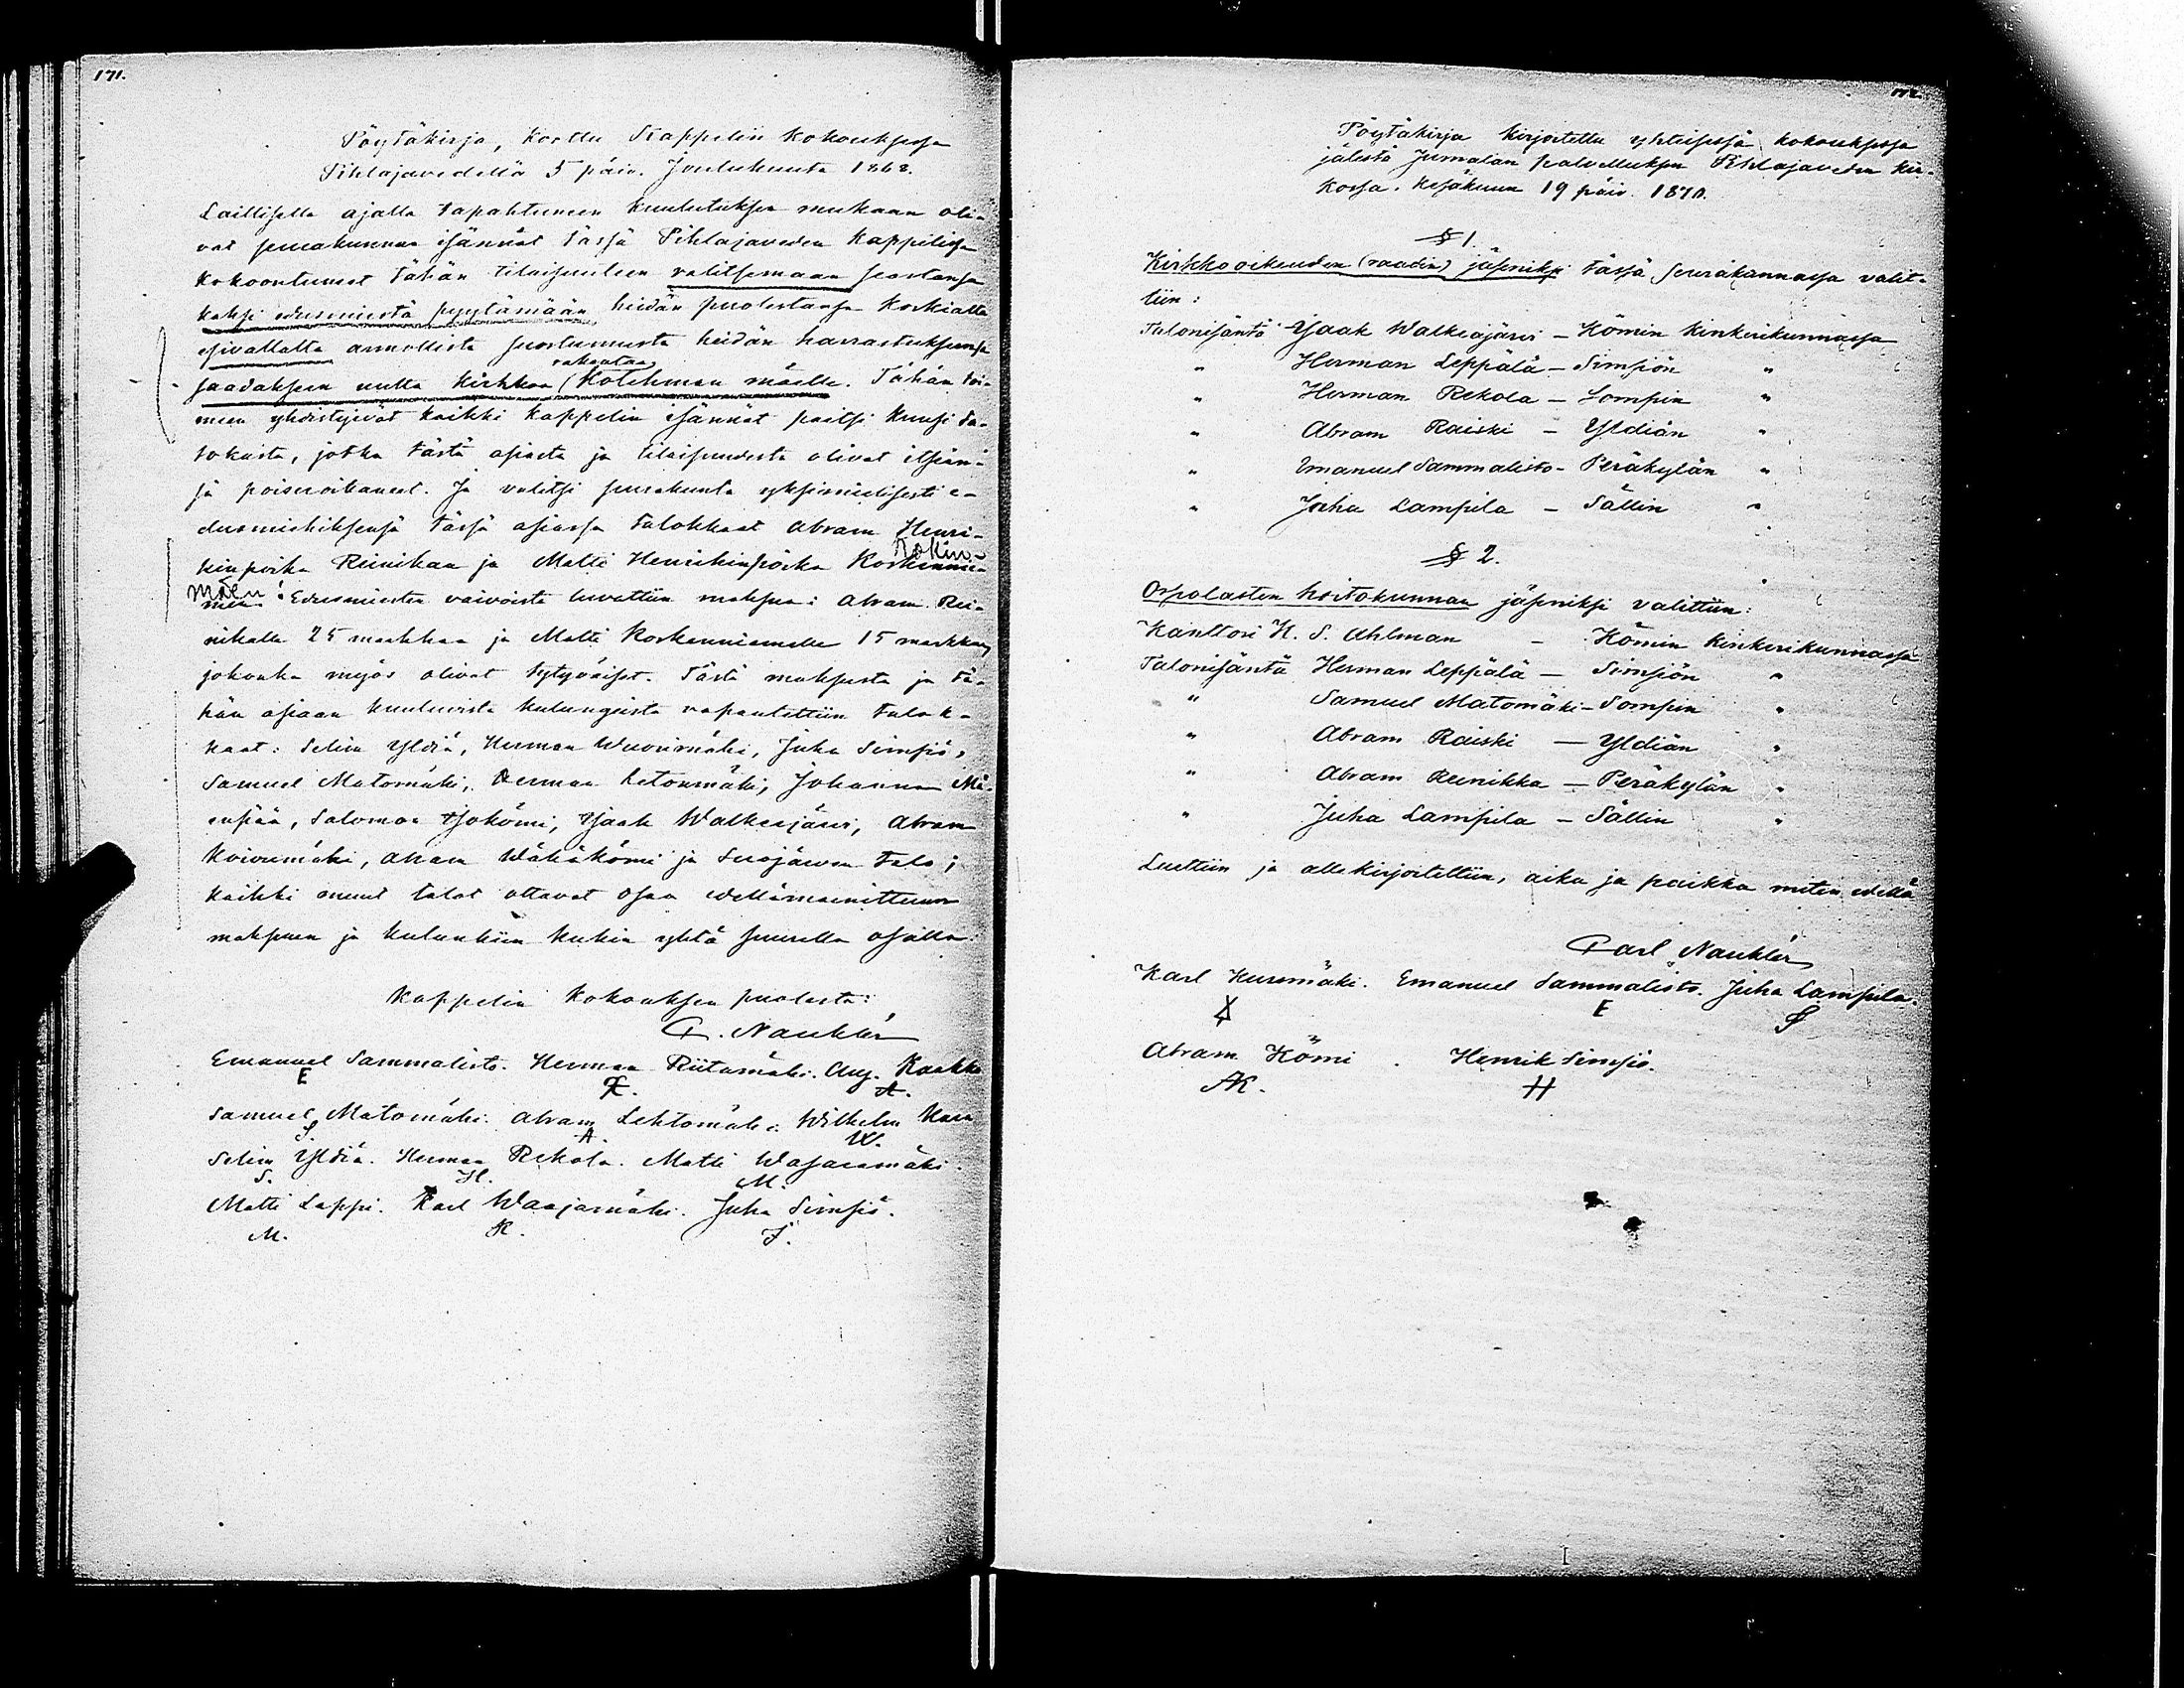 171.
Pöytäkirja, kosttu Kappelin kokouksessa
Pihlajavedellä 5 päiv. Joulukuuta 1868.
Laillisella ajalla tapahtuneen kuulutuksen mukaan oli-
vat seurakunnan isännät tässä Pihlajaveden kappelissa
kokoontuneet tähän tilaisuuteen valitsemaan seastansa
kaksi edusmiestä pyytämään heidän puolestansa korkialta
esivallalta armollista suostumusta heidän harrastuksensa
rakentaa
saadaksen uutta kirkkoa (Kotchman mäelle. Tähän toi-
meen yhdistyivät kaikki kappelin isännät paitsi kuusi ta-
lokasta, jotka tästä asiasta ja tilaisuudesta olivat itsiän-
sä poisvoikaneet. Ja valitsi seurakunta yksimielisesti e-
dusmieshiksensä tässä asiassa talokkaat Abram Henri-
kinpoika Reinikan ja Matti Henrikinpoika Koskennie-
Kokin-
mäen
men. Edusmiesten vaivoista luvattiin maksua: Abram Rei-
nikalle 25 markkaa ja Matti Koskenniemelle 15 markkaa,
johonka myös olivat tytyväiset. Tästä maksusta ja tä-
hän asiaan kuuluvista kulungeista vapautettiin talok-
kaat: Selim Yldiä, Herman Wuorimäki, Juha Simsiö,
Samuel Matomäki, Herman Ketonmäki, Johannes Mä-
enpää, Salomon Isokömi, Isaak Walkeajärvi, Abram
Koivumäki, Abram Wähäkömi ja Suojärven talo;
kaikki muut talot ottavat osaa edellämainittuun
maksuun ja kulunkiin kukin yhtä suurella osalla.
Kappelin kokouksen puolesta:
C. Nauklér
Emanuel Sammalisto. Herman Riitamäki. Aug. Kaakko
E A.
Samuel Matomäki. Abram Lehtomäki. Wilhelm
S A W.
Selim Yldiä. Herman Rekola. Matti Wasaramäki.
S. H. M.
Matti Lappi. Karl Waajamäki. Juha Simsiö.
M. K. J.
172.
Pöytäkirja kirjoitettu yhteisessä kokouksessa
jälestä Jumalan palvelluksen Pihlajaveden kir-
kossa. Kesäkuun 19 päiv. 1870.
§ 1.
Kirkkooikeuden (raadin) jäseniksi tässä seurakunnassa valit-
tiin:
Talonisäntä Isaak Walkeajärvi – Kömin kinkerikunnassa
" Herman Leppälä – Simsiön "
" Herman Rekola – Sompin "
" Abram Raiski – Yldiän "
" Emanuel Sammalisto – Peräkylän "
" Juha Lampila – Sällin "
§ 2.
Orpolasten hoitokunnan jäseniksi valittiin:
Kanttori K. S. Ahlman – Kömin kinkerikunnassa
Talonisäntä Herman Leppälä – Simsiön "
" Samuel Matomäki – Sompin "
" Abram Raiski – Yldiän "
" Abram Reinikka – Peräkylän "
" Juha Lampila – Sällin "
Luettiin ja allekirjoitettiin, aika ja paikka miten edellä
Carl Nauklér
Karl Kurenmäki. Emanuel Sammalisto. Juha Lampila.
E
Abram Kömi. Henrik Simsiö.
AK. H